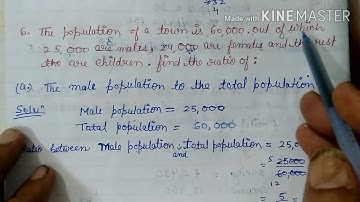 Made with KINEMASTER
6. The population of a town is 60,000. out of which
25,000 are males, 24,000 are females and the rest
the are children. find the ratio of:
(a) The male population to the total population
Solun
Male population = 25,000
Total population = 60,000
Ratio between Male population and Total population = 25,0
5 25000
60,000
12
5